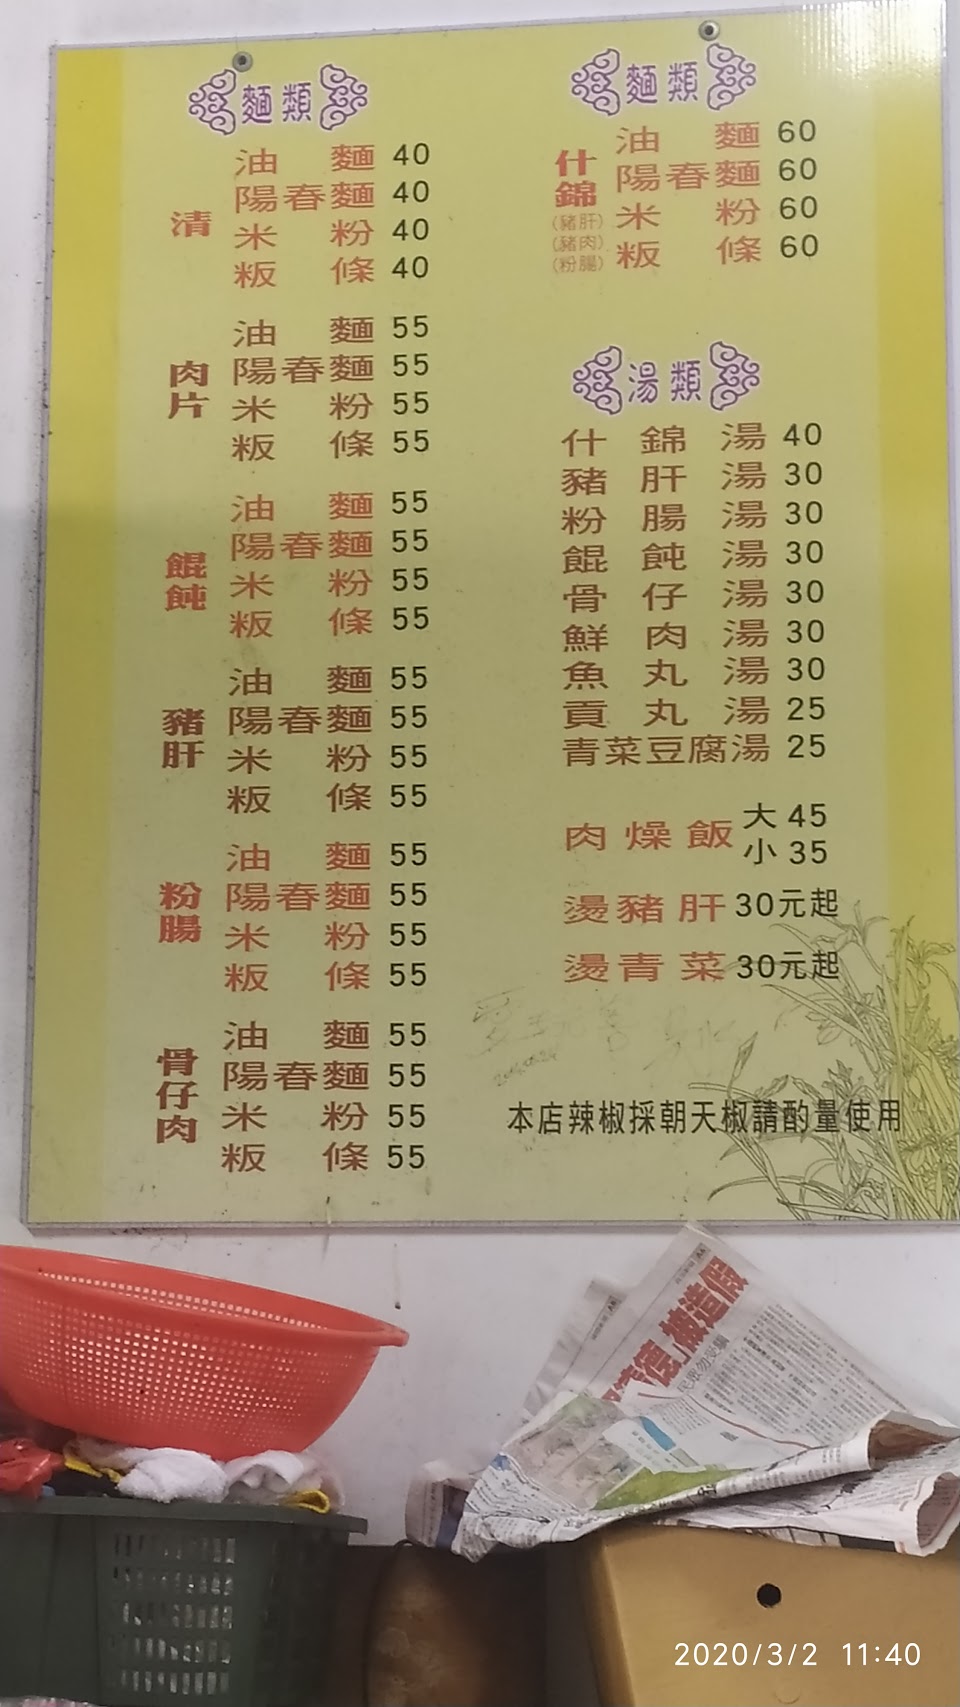 麵類
清
油麵 40
陽春麵 40
米粉 40
粄條 40
肉片
油麵 55
陽春麵 55
米粉 55
粄條 55
餛飩
油麵 55
陽春麵 55
米粉 55
粄條 55
豬肝
油麵 55
陽春麵 55
米粉 55
粄條 55
粉腸
油麵 55
陽春麵 55
米粉 55
粄條 55
骨仔肉
油麵 55
陽春麵 55
米粉 55
粄條 55
麵類
什錦
(豬肝)
(豬肉)
(粉腸)
油麵 60
陽春麵 60
米粉 60
粄條 60
湯類
什錦湯 40
豬肝湯 30
粉腸湯 30
餛飩湯 30
骨仔湯 30
鮮肉湯 30
魚丸湯 30
貢丸湯 25
青菜豆腐湯 25
肉燥飯 大 45
小 35
燙豬肝 30元起
燙青菜 30元起
本店辣椒採朝天椒請酌量使用
被造假
2020/3/2 11:40